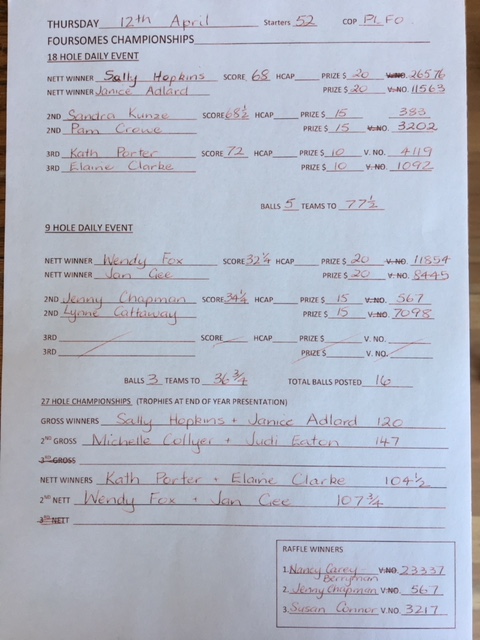 THURSDAY 12th April Starters 52 COP PLFO
FOURSOMES CHAMPIONSHIPS
18 HOLE DAILY EVENT
NETT WINNER Sally Hopkins SCORE 68 HCAP PRIZE $ 20 V.NO. 26576
NETT WINNER Janice Adlard PRIZE $ 20 V.NO. 11563
2ND Sandra Kunze SCORE 68½ HCAP PRIZE $ 15 383
2ND Pam Crowe PRIZE $ 15 V.NO. 3202
3RD Kath Porter SCORE 72 HCAP PRIZE $ 10 V. NO. 4119
3RD Elaine Clarke PRIZE $ 10 V.NO. 1092
BALLS 5 TEAMS TO 77½
9 HOLE DAILY EVENT
NETT WINNER Wendy Fox SCORE 32¼ HCAP PRIZE $ 20 V.NO. 11854
NETT WINNER Jan Gee PRIZE $ 20 V.NO. 8445
2ND Jenny Chapman SCORE 34¼ HCAP PRIZE $ 15 V.NO. 567
2ND Lynne Cattaway PRIZE $ 15 V.NO. 7098
3RD SCORE HCAP PRIZE $ V. NO.
3RD PRIZE $ V. NO.
BALLS 3 TEAMS TO 36¾ TOTAL BALLS POSTED 16
27 HOLE CHAMPIONSHIPS (TROPHIES AT END OF YEAR PRESENTATION)
GROSS WINNERS Sally Hopkins + Janice Adlard 120
2ND GROSS Michelle Collyer + Judi Eaton 147
3RD GROSS
NETT WINNERS Kath Porter + Elaine Clarke 104½
2ND NETT Wendy Fox + Jan Gee 107¾
3RD NETT
RAFFLE WINNERS
1. Nancy Carey- V.NO. 23337
Berryman
2. Jenny Chapman V.NO. 567
3. Susan Connor V.NO. 3217